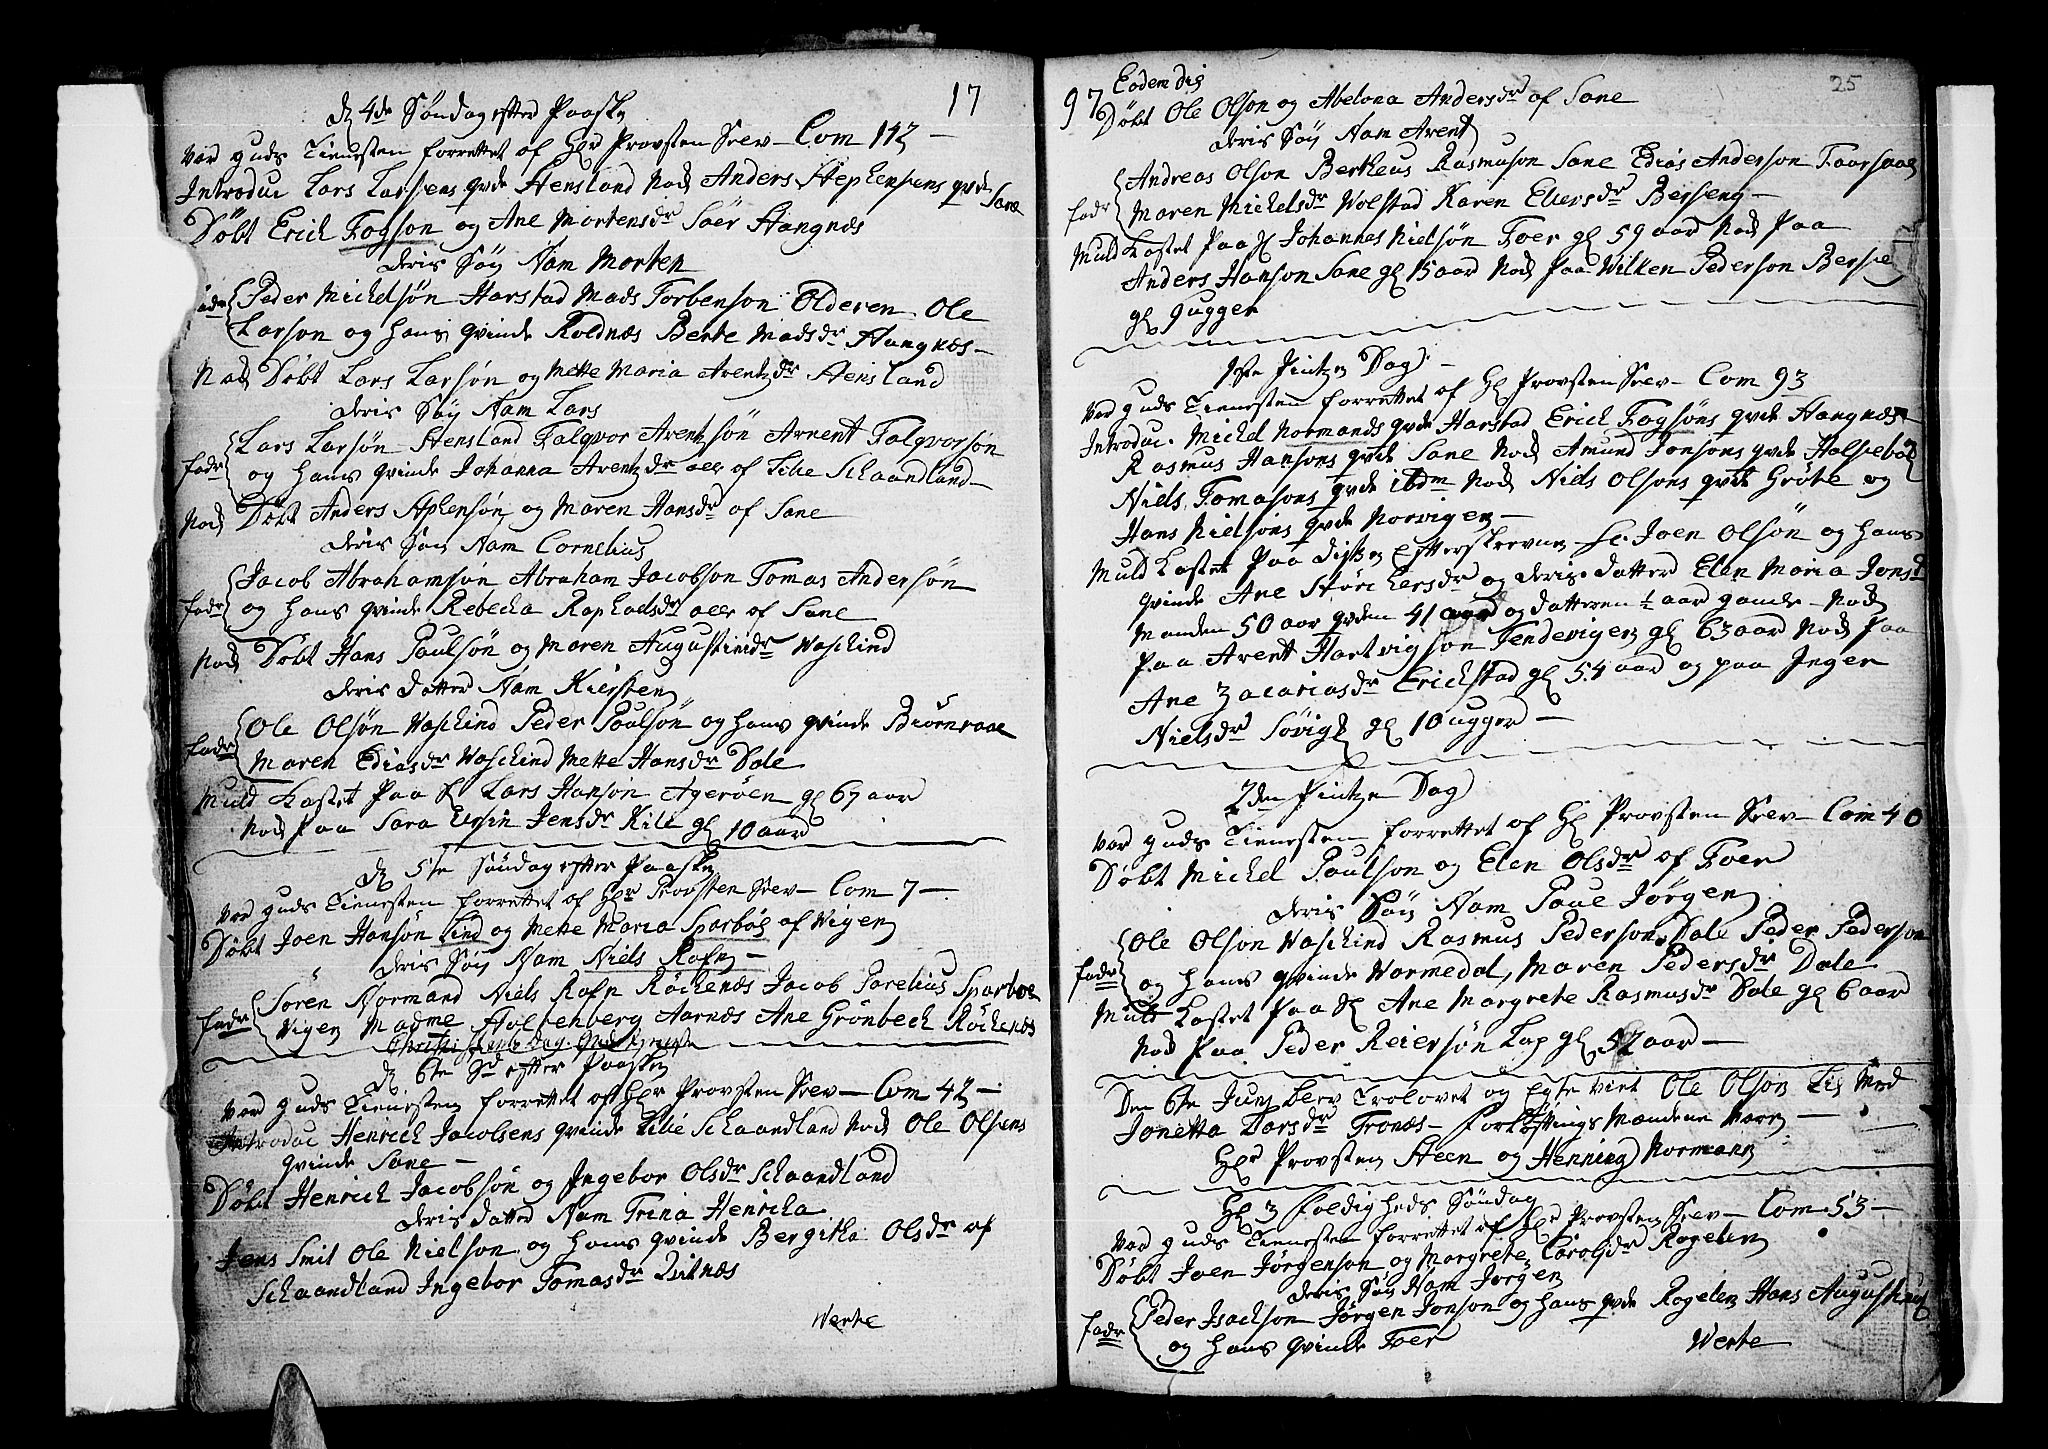 17
d 4de Søndag efter Paaske
var Guds Tienesten forrettet af Hr Provsten Seev - Com 112 -
Introduc Lars Larsens qvde Stensland Nock Anders Stephensens qvde Sane
Døbt Erick Fogson og Ane Mortensdr Saer Stangnæs
deris Søn Nam Morten
fadr Peder Michelsøn Harstad Mads Torbenson Olderen Ole
Larson og hans qvinde Roldnæs Berte Madsdr Stangnæs -
Nock Døbt Lars Larsøn og Mette Maria Arentzdr Stensland
deris Søn Nam Lars
fadr Lars Larsøn Stensland Falqvor Arentzsøn Arnent Falqvorson
og hans qvinde Johanna Arentzdr alle af Lille Schaandland -
Nock Døbt Anders Stphensøn og Maren Hansdr af Sane
deris Søn Nam Cornelius
fadr Jacob Abrahamsøn Abraham Jacobson Tomas Andersøn
og hans qvinde Rebecka Raphadsdr alle af Sane
Nock Døbt Hans Paulsøn og Maren Augustinidr Waschind
deris datter Nam Kiersten
fadr Ole Olsøn Waschind Peder Poulsøn og hans qvinde Biørnraae
Maren Ediasdr Waschind Mette Hansdr Dale
Muld Kastet Paa Lars Hansøn Agerøen gl 67 aar
Nock Paa Sara Ersin Jensdr Kile gl 10 aar
d 5te Søndag efter Paaske
var Guds Tienesten forrettet af Hr Provsten Seev - Com 7 -
Døbt Joen Hansøn Lind og Mette Maria Sparboe af Vigen
deris Søn Nam Niels Rafn -
fadr Søren Normand Niels Rafn Røckenæs Jacob Parelius Sparboe
Vigen Madme Holtenberg Aarnæs Ane Grønbeck Røckenæs
d 6te Sd efter Paaske
var Guds Tienesten forrettet af Hr Provsten Seev - Com 42 -
Introduc Henrich Jacobsens qvinde Lille Schaandland Nock Ole Olsens
qvinde Sane -
Døbt Henrich Jacobsøn og Ingebor Olsdr Schaandland
deris datter Nam Trina Henricha
Jens Smit Ole Nielson og hans qvinde Bergitha Olsdr af
Schaandland Ingebor Tomasdr Qvitnæs
Verte
97 25
Eodem die
Døbt Ole Olson og Abelona Andersdr af Sane
deris Søn Nam Arent
fadr Andreas Olson Bertheus Rasmuson Sane Edias Anderson Faarsaae
Maren Michelsdr Wolstad Karen Elversdr Berseng -
Muld Kastet Paa Johannes Nielsøn Foer gl 59 aar Nock Paa
Anders Hanson Sane gl 15 aar Nock paa Wilken Pederson Bersie
gl Jugger
1ste Pintze Dag -
var Guds Tienesten forrettet af Hr Provsten Seev - Com 93
Introduc. Michel Normands qvde Harstad Erick Fogsøns qvde Stangnæs
Rasmus Hansøns qvde Sane Nock Amund Jonsons qvde Halsebøe
Niels Tomasons qvde ibdm Nock Niels Olsons qvde Grøte og
Hans Nielsøns qvde Norvigen -
Muld Kastet Paa disse Efterskrevne Joen Olsøn og hans
qvinde Ane Størckersdr og deris datter Elen Maria Jonsd
Manden 50 aar qvden 41 aar og datteren ½ aar gamle - Nock
paa Arent Hartvigson Tendevigen gl 63 aar Nock Paa
Ane Zacariasdr Erickstad gl 54 aar og paa Inger
Nielsdr Søvig gl 10 ugger -
2den Pintze Dag
var Guds Tienesten forrettet af Hr Provsten Seev - Com 40
Døbt Michel Paulson og Elen Olsdr af Foer
deris Søn Nam Paul Jørgen
fadr Ole Olson Waschind Rasmus Pederson Dale Peder Pederson
og hans qvinde Wormedal, Maren Pedersdr Dale
Muld Kastet Paa Ane Margrete Rasmusdr Dale gl 6 aar
Nock Paa Peder Reiersøn Lap gl 52 aar -
Den 6te Junj blev Trolovet og Egte viet Ole Olson Lie Med
Jonetta Larsdr Tronæs - Forløftings Mændene Vare -
Hr Provsten Steen og Henning Normann
Hl 3 Foldigheds Søndag
var Guds Tienesten forrettet af Hr Provsten Seev - Com 53 -
Døbt Joen Jørgenson og Margrete Carolsdr Rogelen
deris Søn Nam Jørgen
fadr Peder Isackson Jørgen Jonson og hans qvde Rogelen Hans Augustinus
og hans qvinde Foer
Verte